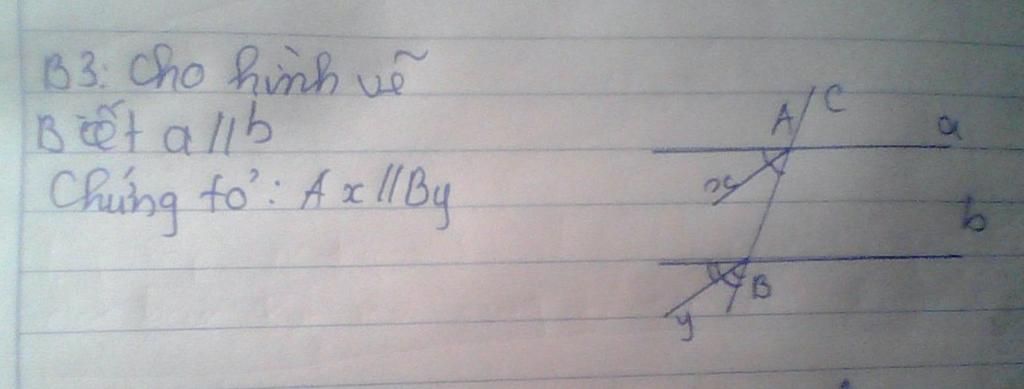 B3: Cho hình vẽ
Biết a//b
Chứng tỏ: Ax//By
A C
a
x
b
B
y